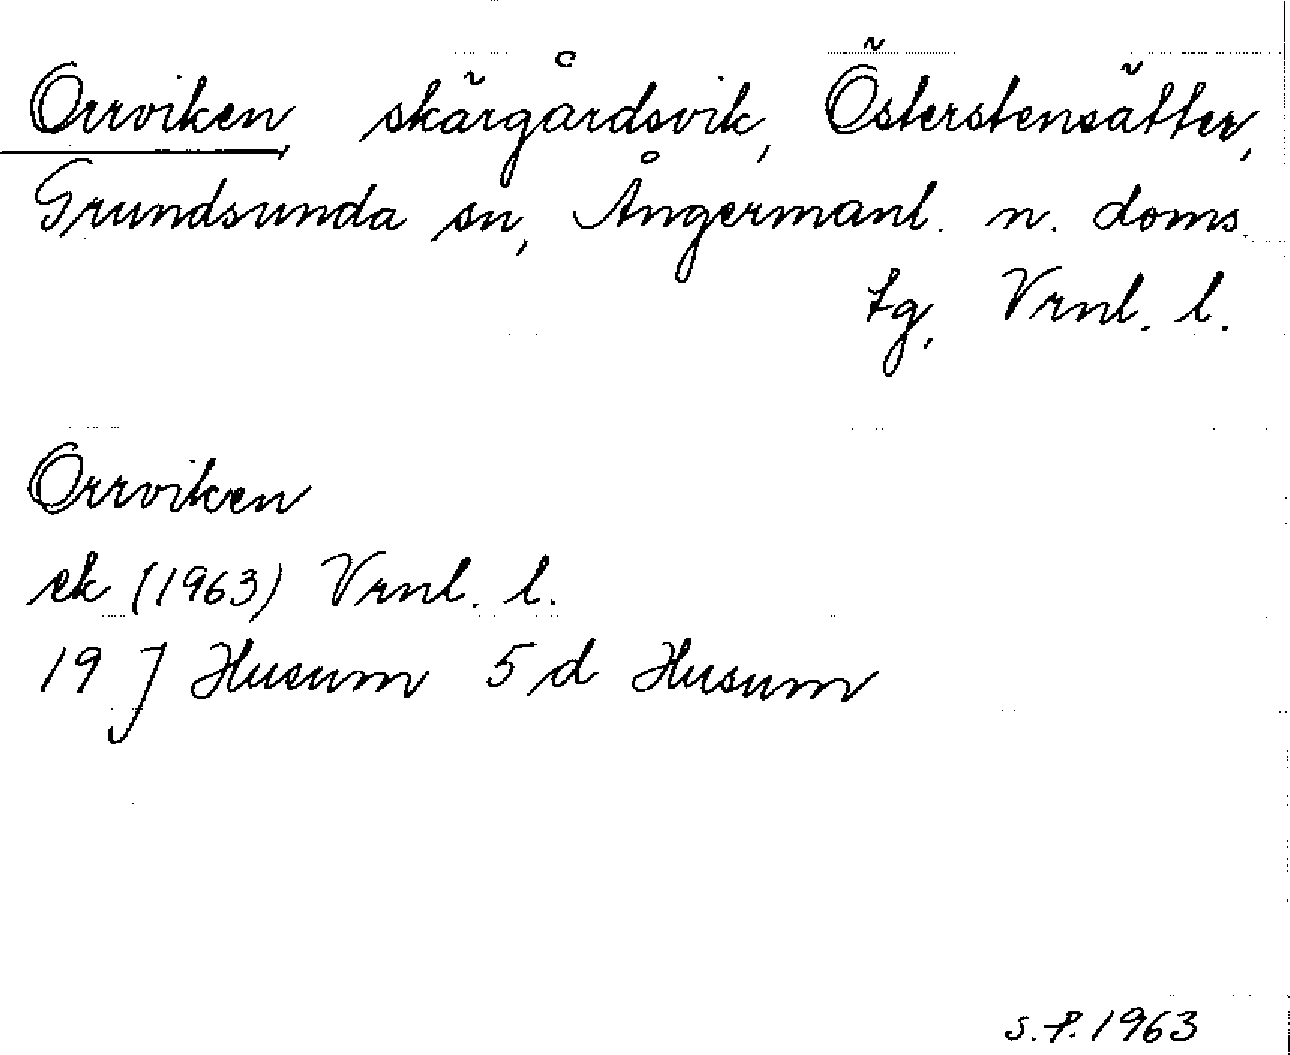 Orrviken, skärgårdsvik, Österstensätter,
Grundsunda sn, Ångermanl. n. doms.
tg, Vrnl. l.
Orrviken
ek (1963) Vrnl. l.
19 J Husum 5 d Husum
S.F. 1963